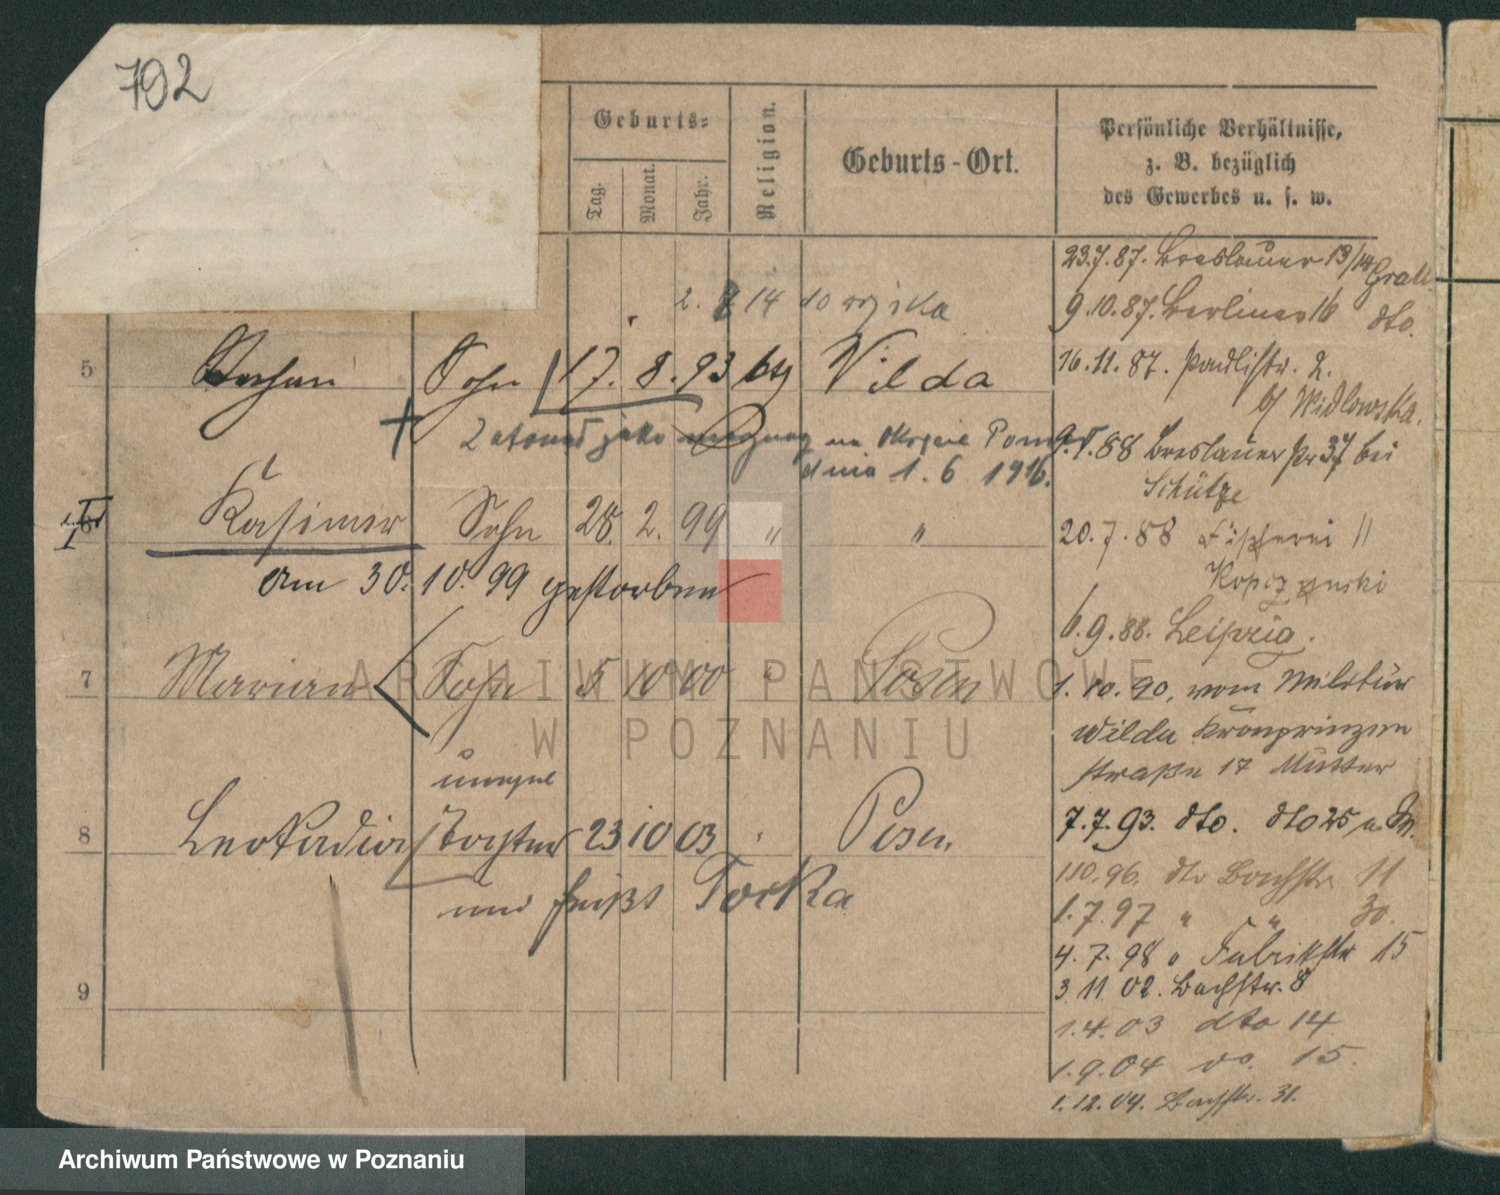 792
Geburts-
Tag.
Monat.
Jahr.
Religion.
Geburts-Ort.
Persönliche Verhältnisse,
z. B. bezüglich
des Gewerbes u. s. w.
23.7.87. Breslauer 13/14
9.10.87. Berliner 16 dto.
2. 8 14 do wojska
5 Sohn 17. 8. 93 Wilda
16.11.87. 2.
b/ Widlowska.
jako na
dnia 1. 6 1916.
88 Breslauer 37 bei
Schütze
6 Kasimir Sohn 28. 2. 99 " "
20.7.88 Fischerei 11
am 30. 10. 99 gestorben
6.9.88. Leipzig.
7 Marian Sohn 5 10 00 " Posen
1.10.90, vom Militär
Wilda Kronprinzen
straße 17 Mutter
unegel
8 Leokadia Tochter 23 10 03 " Posen.
7.7.93. dto. dto 25
und heißt Torka
1.10.96. dto Bachstr. 11
1.7.97 " " 30.
4.7.98 Fabrikstr 15
9
3.11 02. Bachstr. 8
1.4.03 dto 14
1.9.04 do. 15.
1.12.04. Bachstr. 31.
ARCHIWUM PAŃSTWOWE
W POZNANIU
Archiwum Państwowe w Poznaniu